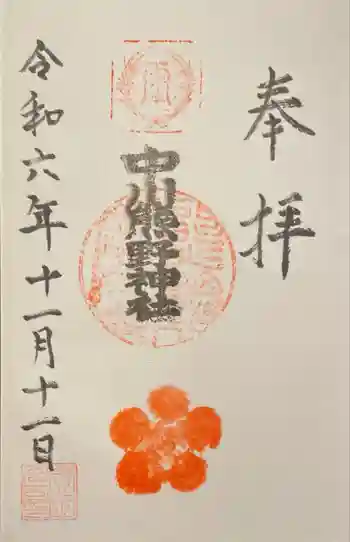 奉拝
中山熊野神社
令和六年十一月十一日